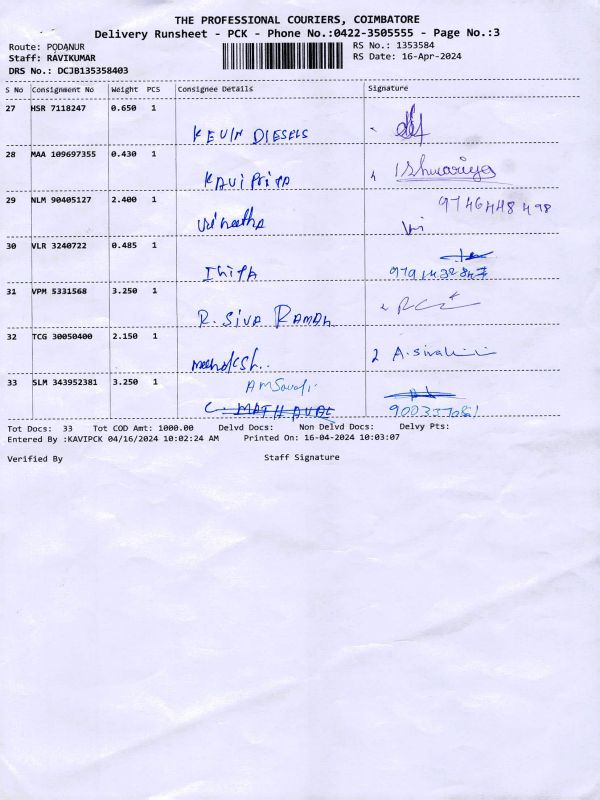 THE PROFESSIONAL COURIERS, COIMBATORE
Delivery Runsheet - PCK - Phone No.:0422-3505555 - Page No.:3
Route: PODANUR
RS No.: 1353584
Staff: RAVIKUMAR
RS Date: 16-Apr-2024
DRS No.: DCJB135358403
S No Consignment No Weight PCS Consignee Details Signature
27 HSR 7118247 0.650 1
KEVIN DIESELS
28 MAA 109697355 0.430 1
KAVI PRIYA Ishwariya
29 NLM 90405127 2.400 1
9746448498
Vinetha
30 VLR 3240722 0.485 1
31 VPM 5331568 3.250 1
R. SIVA RAMAN
32 TCG 30050400 2.150 1
33 SLM 343952381 3.250 1
C. MATHAVAL
Tot Docs: 33 Tot COD Amt: 1000.00 Delvd Docs: Non Delvd Docs: Delvy Pts:
Entered By :KAVIPCK 04/16/2024 10:02:24 AM Printed On: 16-04-2024 10:03:07
Verified By Staff Signature